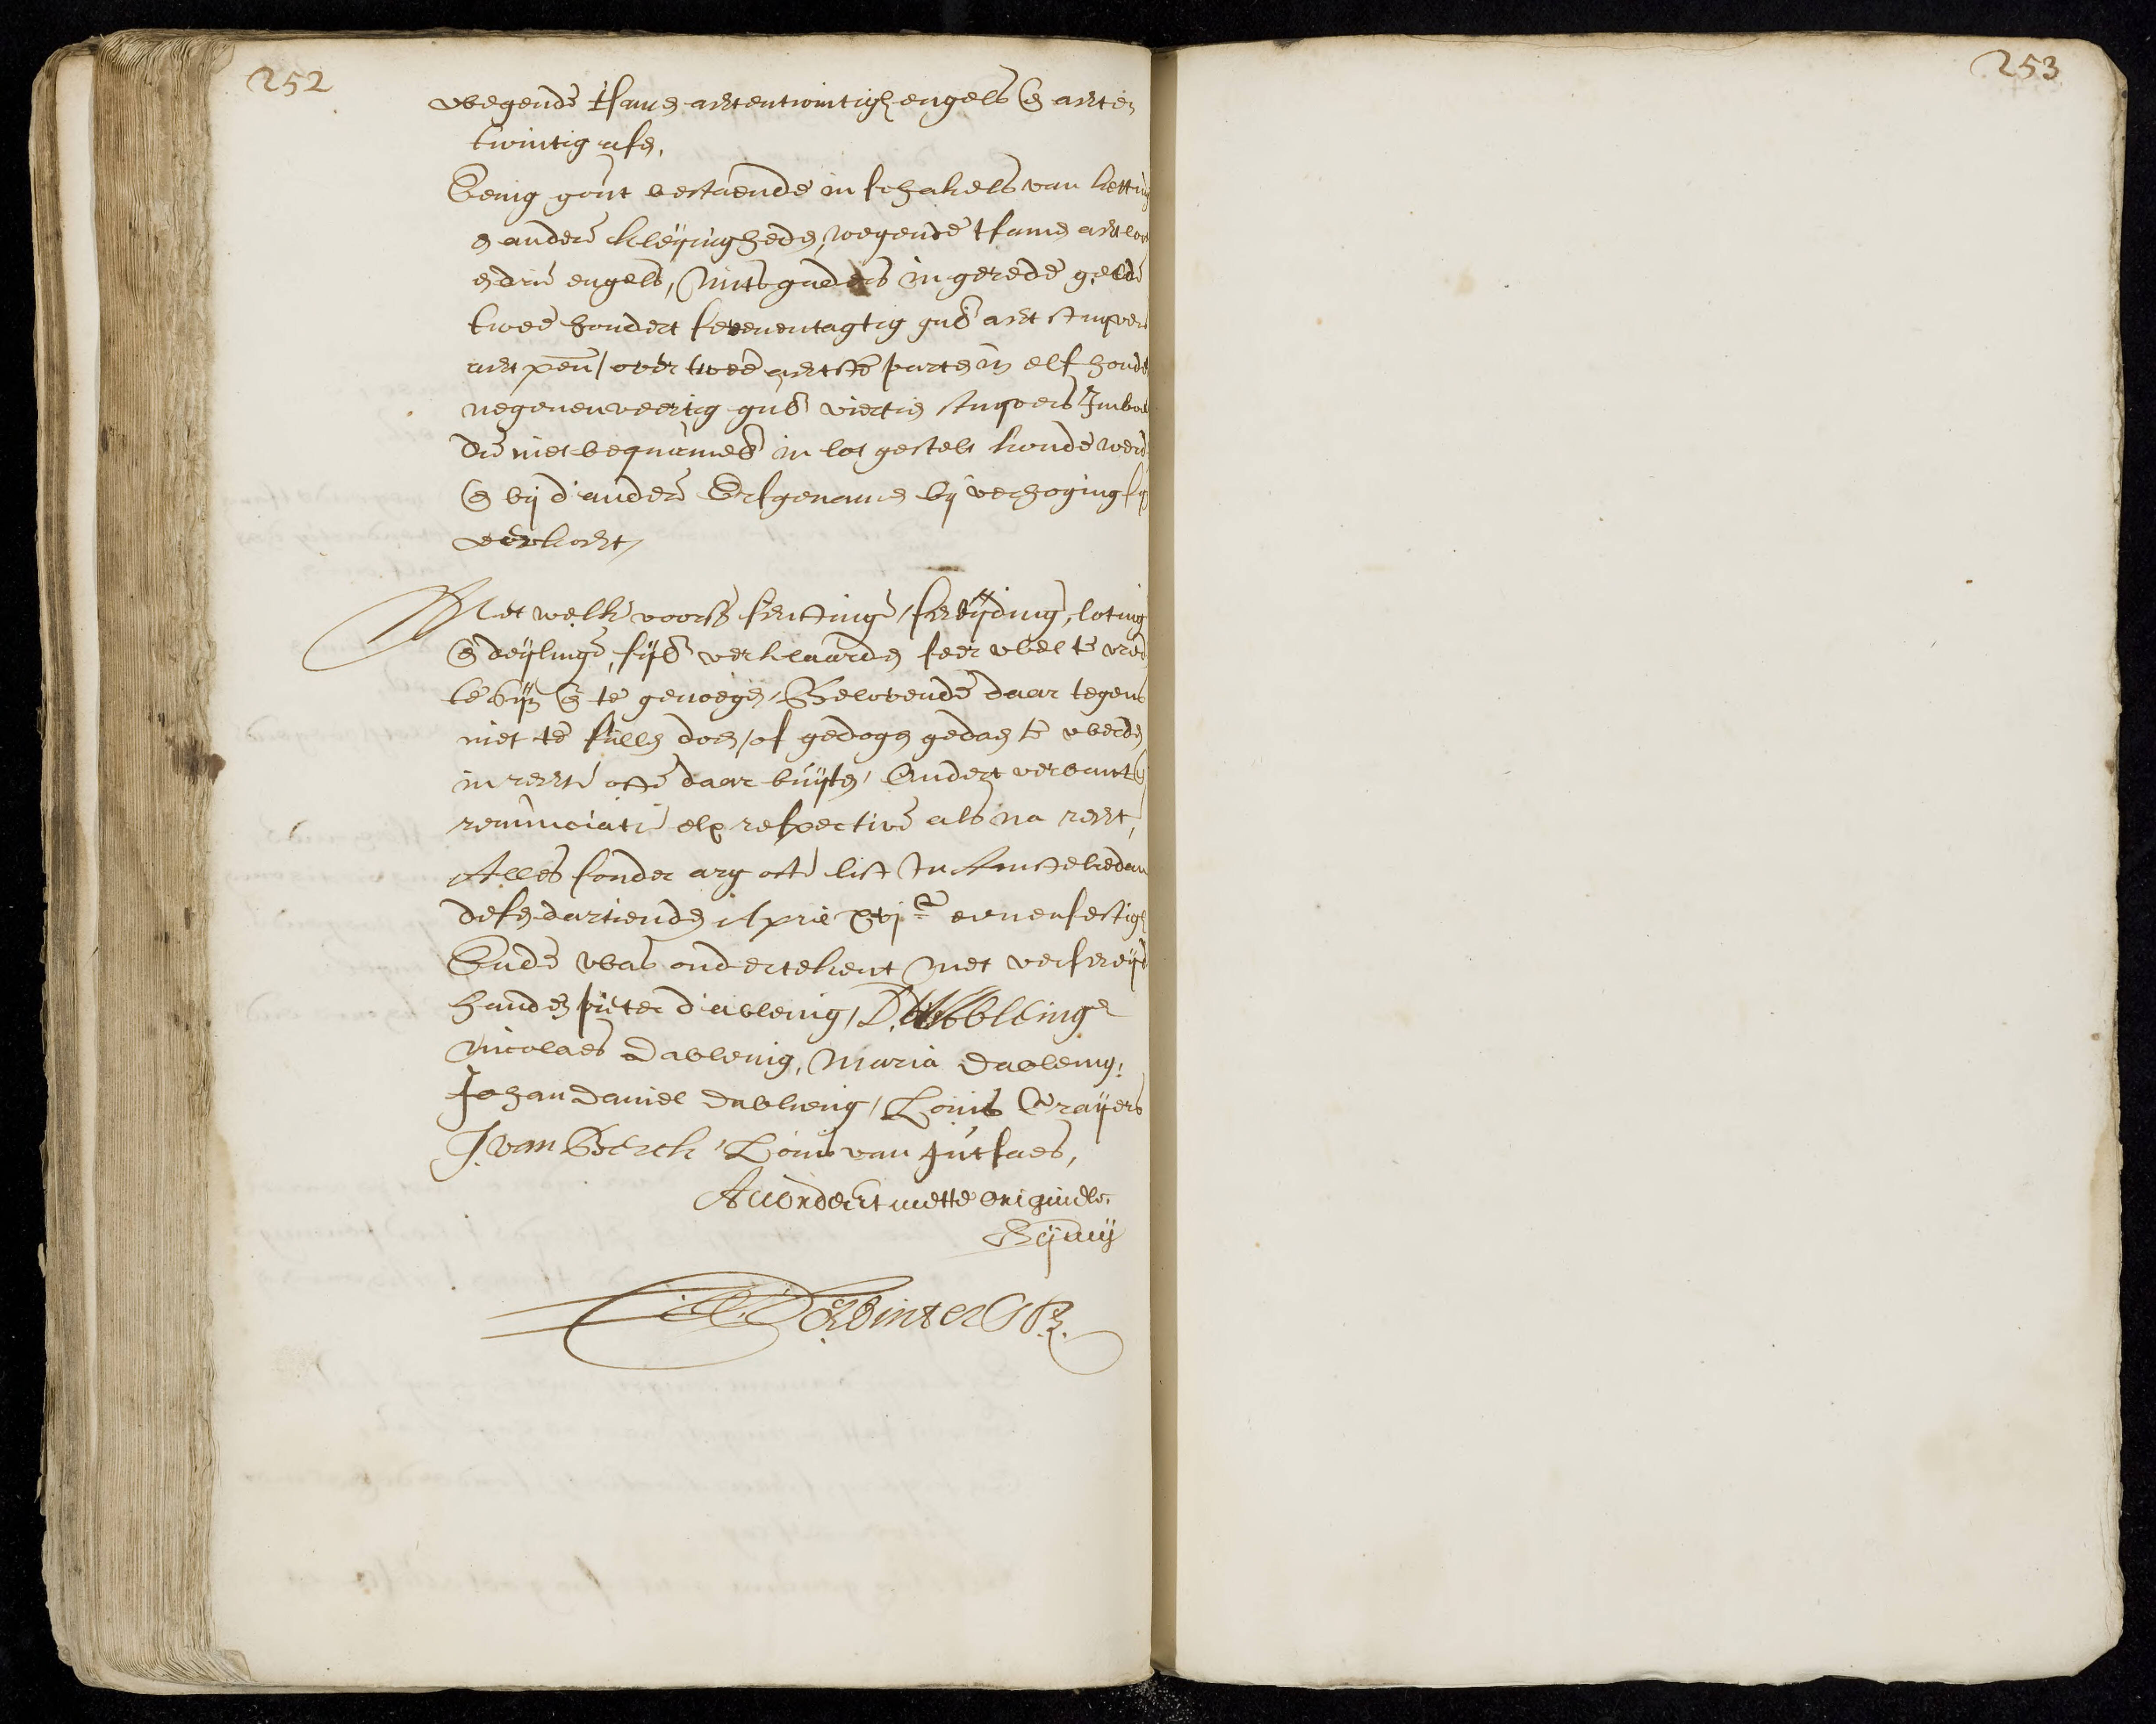 252
wegende tsame achtentwintigh engels en achten
twintig asen,
Eenig gout bestaende in schakels van kettin
en andere kleijnigheden, wegende tsamen acht loo
en drie engels, mitsgaders in gerede gelde
twee hondert sevenentagtig guls acht stuyvers
acht penn / over twee achtste parten in elf hond
negenenveertig guls viertien stuyvers Inboel
die niet bequamer in lot gestelt konde werde
en bij d'andere Erfgenamen bij verhoging sijn
verkocht,
Met welke voors schifting, scheijding, loting
en deijlinge, sijl: verklaarden seer wel te vred
te sijn en te genoegen, Belovende daar tegens
niet te sullen doen, of gedogen gedaen te werden
in rechte ofte daar buijten, Onder verbant en
renunciatie elx respective als na recht,
Alles sonder arg ofte list In Amsteledam
desen dartienden April xvjc eenensestigh
Ende was ondertekent met verscheijd
handen pieter d'ableing, D. d'Ableing
Nicolaes Dableing, Maria Dableing,
Johan Daniel Dableing, Louis Crayers
J. van Bverck, Louis van Jutfaes,
Accordeert mette originele.
Bij mij
A. D. Winter NP.
253